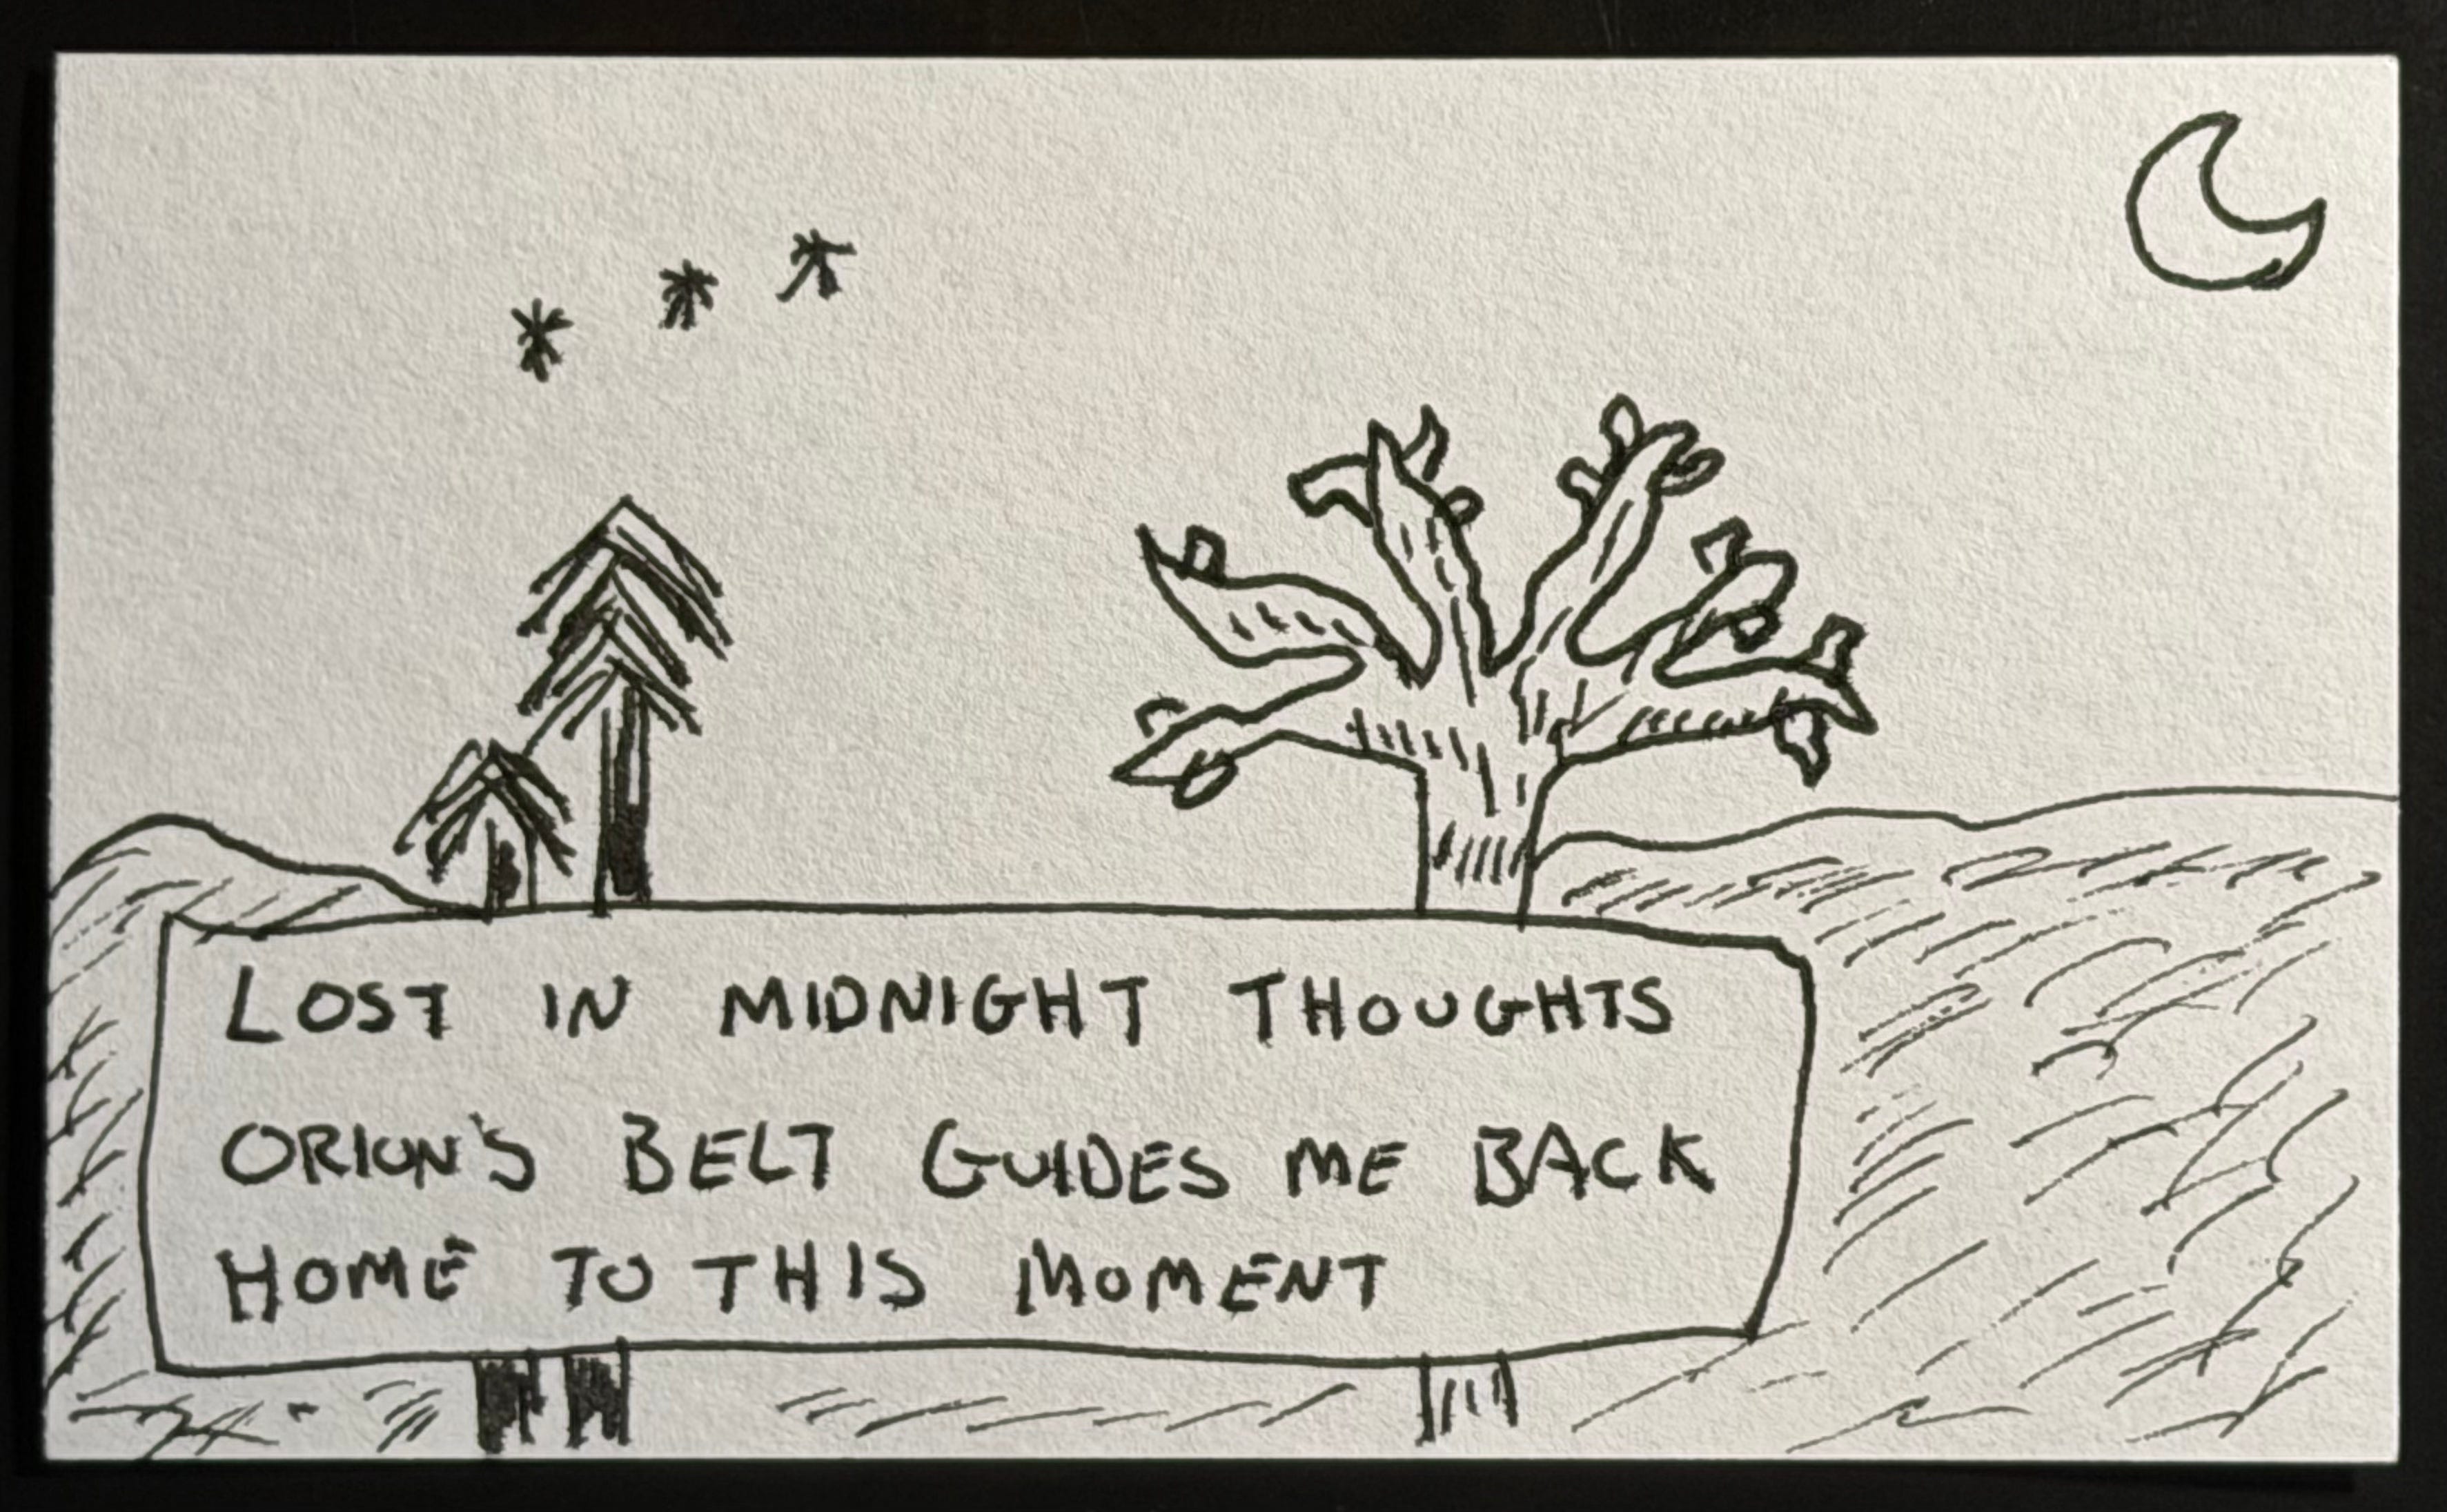 LOST IN MIDNIGHT THOUGHTS
ORION'S BELT GUIDES ME BACK
HOME TO THIS MOMENT